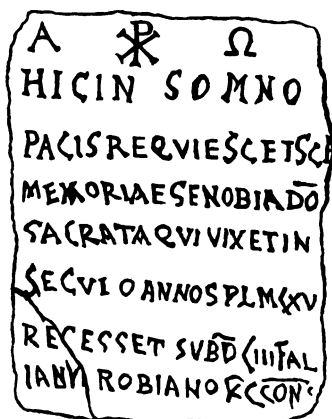 Α ☧ Ω
HIC IN SOMNO
PACIS REQVIESCET SC
MEMORIAE SENOBIA DO
SACRATA QVI VIXET IN
SECVLO ANNOS PLM XV
RECESSET SVB D III KAL
IANV ROBIANO CON